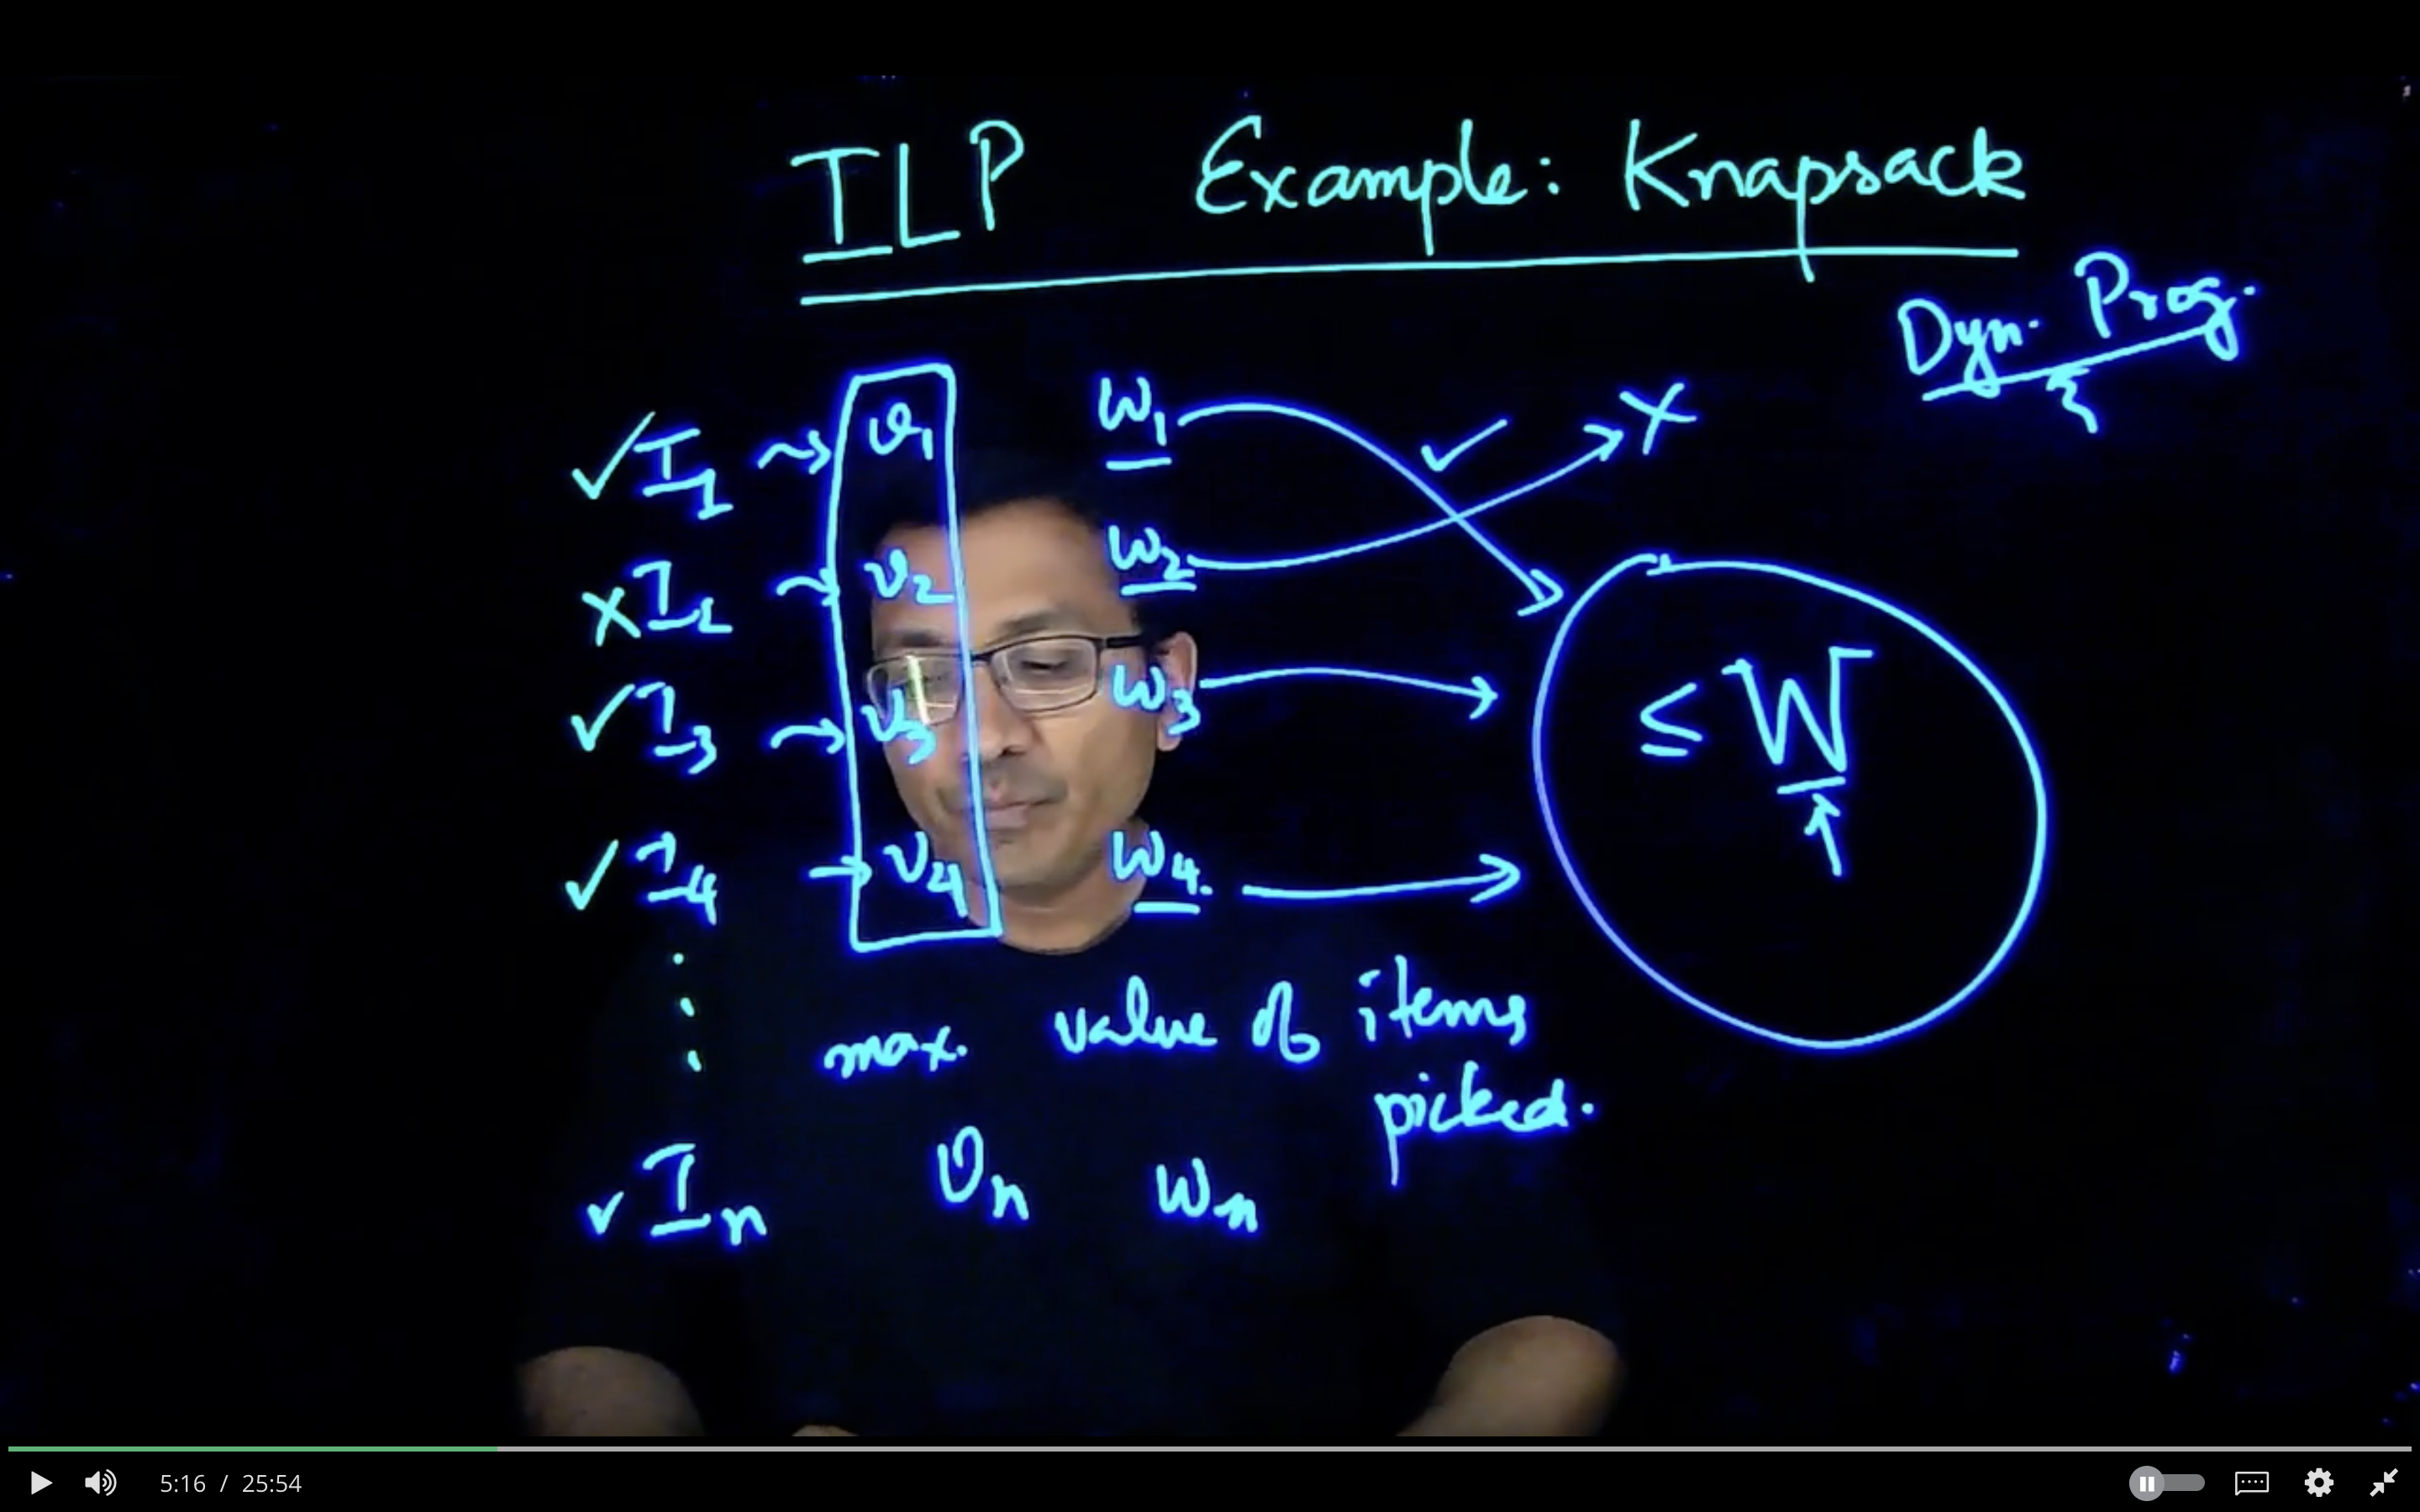 ILP Example: Knapsack
Dyn. Prog.
✓ I1 v1 w1 ✓ X
X I2 v2 w2
✓ I3 v3 w3 ≤ W
✓ I4 v4 w4.
max. value of items
picked.
✓ In vn wn
5:16 / 25:54